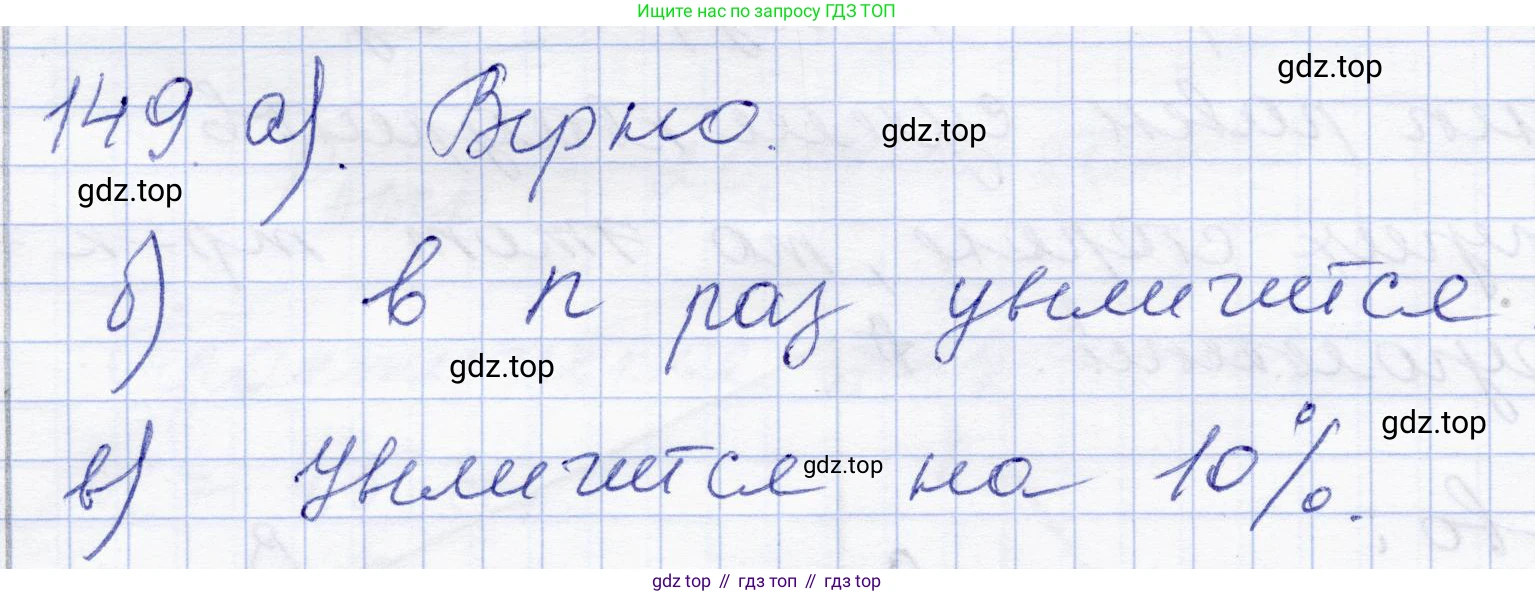 Ищите нас по запросу ГДЗ ТОП
gdz.top
149. а). Верно. gdz.top
gdz.top
б) в n раз увеличится
gdz.top
gdz.top
в) Увеличится на 10%.
gdz.top
gdz top // гдз топ // гдз top